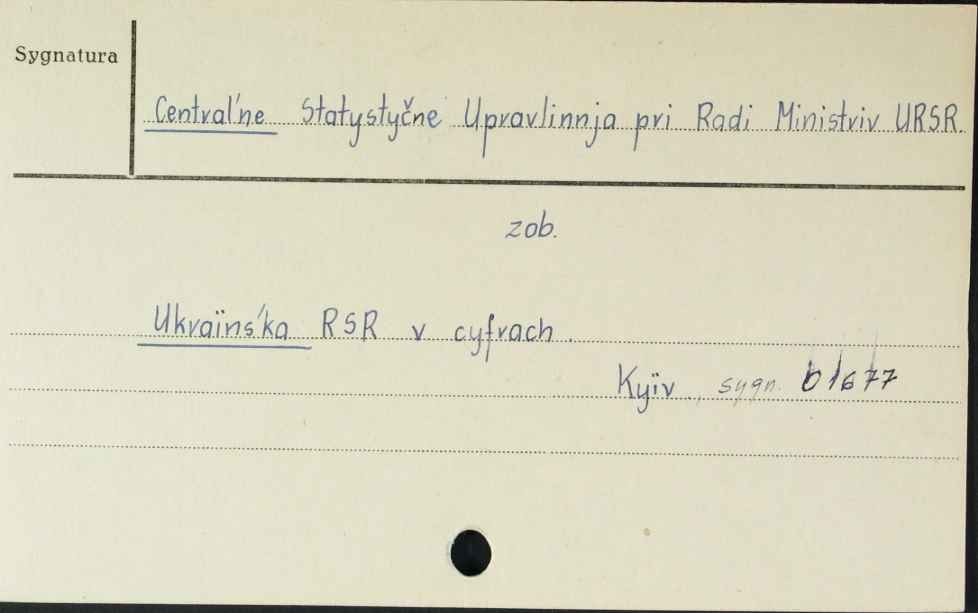 Sygnatura
Central'ne Statystyčne Upravlinnja pri Radi Ministriv URSR.
zob.
Ukraïns'ka RSR v cyfrach.
Kyïv, sygn. b/677